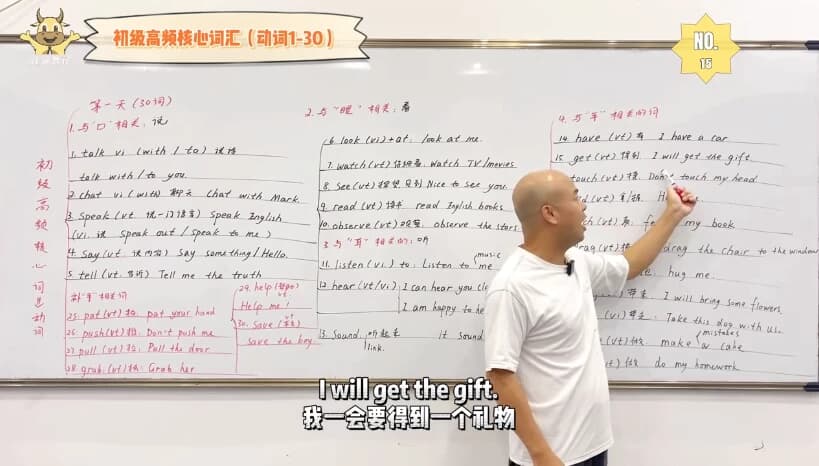 初级高频核心词汇（动词1-30）
NO.
15
初级高频核心词与动词
第一天（30词）
1. 与"口"相关：说
1. talk vi (with / to) 说话
talk with / to you.
2. chat vi (with) 聊天 Chat with Mark
3. Speak (vt 说一门语言) Speak English
(vi. 说 Speak out / Speak to me)
4. Say (vt 说内容) Say something / Hello.
5. tell (vt. 告诉) Tell me the truth
补"手"相关词
25. pat (vt) 拍: pat your hand
26. push (vt) 推: Don't push me
27. pull (vt) 拉: Pull the door
28. grab (vt) 抓: Grab her
29. help (帮助)
vt
Help me!
30. Save
vt
Save the boy.
2. 与"眼"相关：看
6. look (vi) + at: look at me.
7. watch (vt) Watch TV / movies
8. See (vt) Nice to see you
9. read (vt) 读书 read English books
10. observe (vt) 观察 observe the stars
3. 与"耳"相关的: 听
11. listen (vi.) to: Listen to me
music
12. hear (vt / vi) I can hear you
I am happy to he
13. Sound. 听起来 it sound
link.
4. 与"手"相关的词
14. have (vt) 有 I have a car
15 get (vt) 得到 I will get the gift
touch (vt) 摸 Don't touch my head
my book
drag the chair to the window
hug me.
I will bring some flowers.
(vi) 带走: Take this dog with us.
(vt) 做 make a cake
mistakes
(vt) 做 do my homework
I will get the gift.
我一会要得到一个礼物